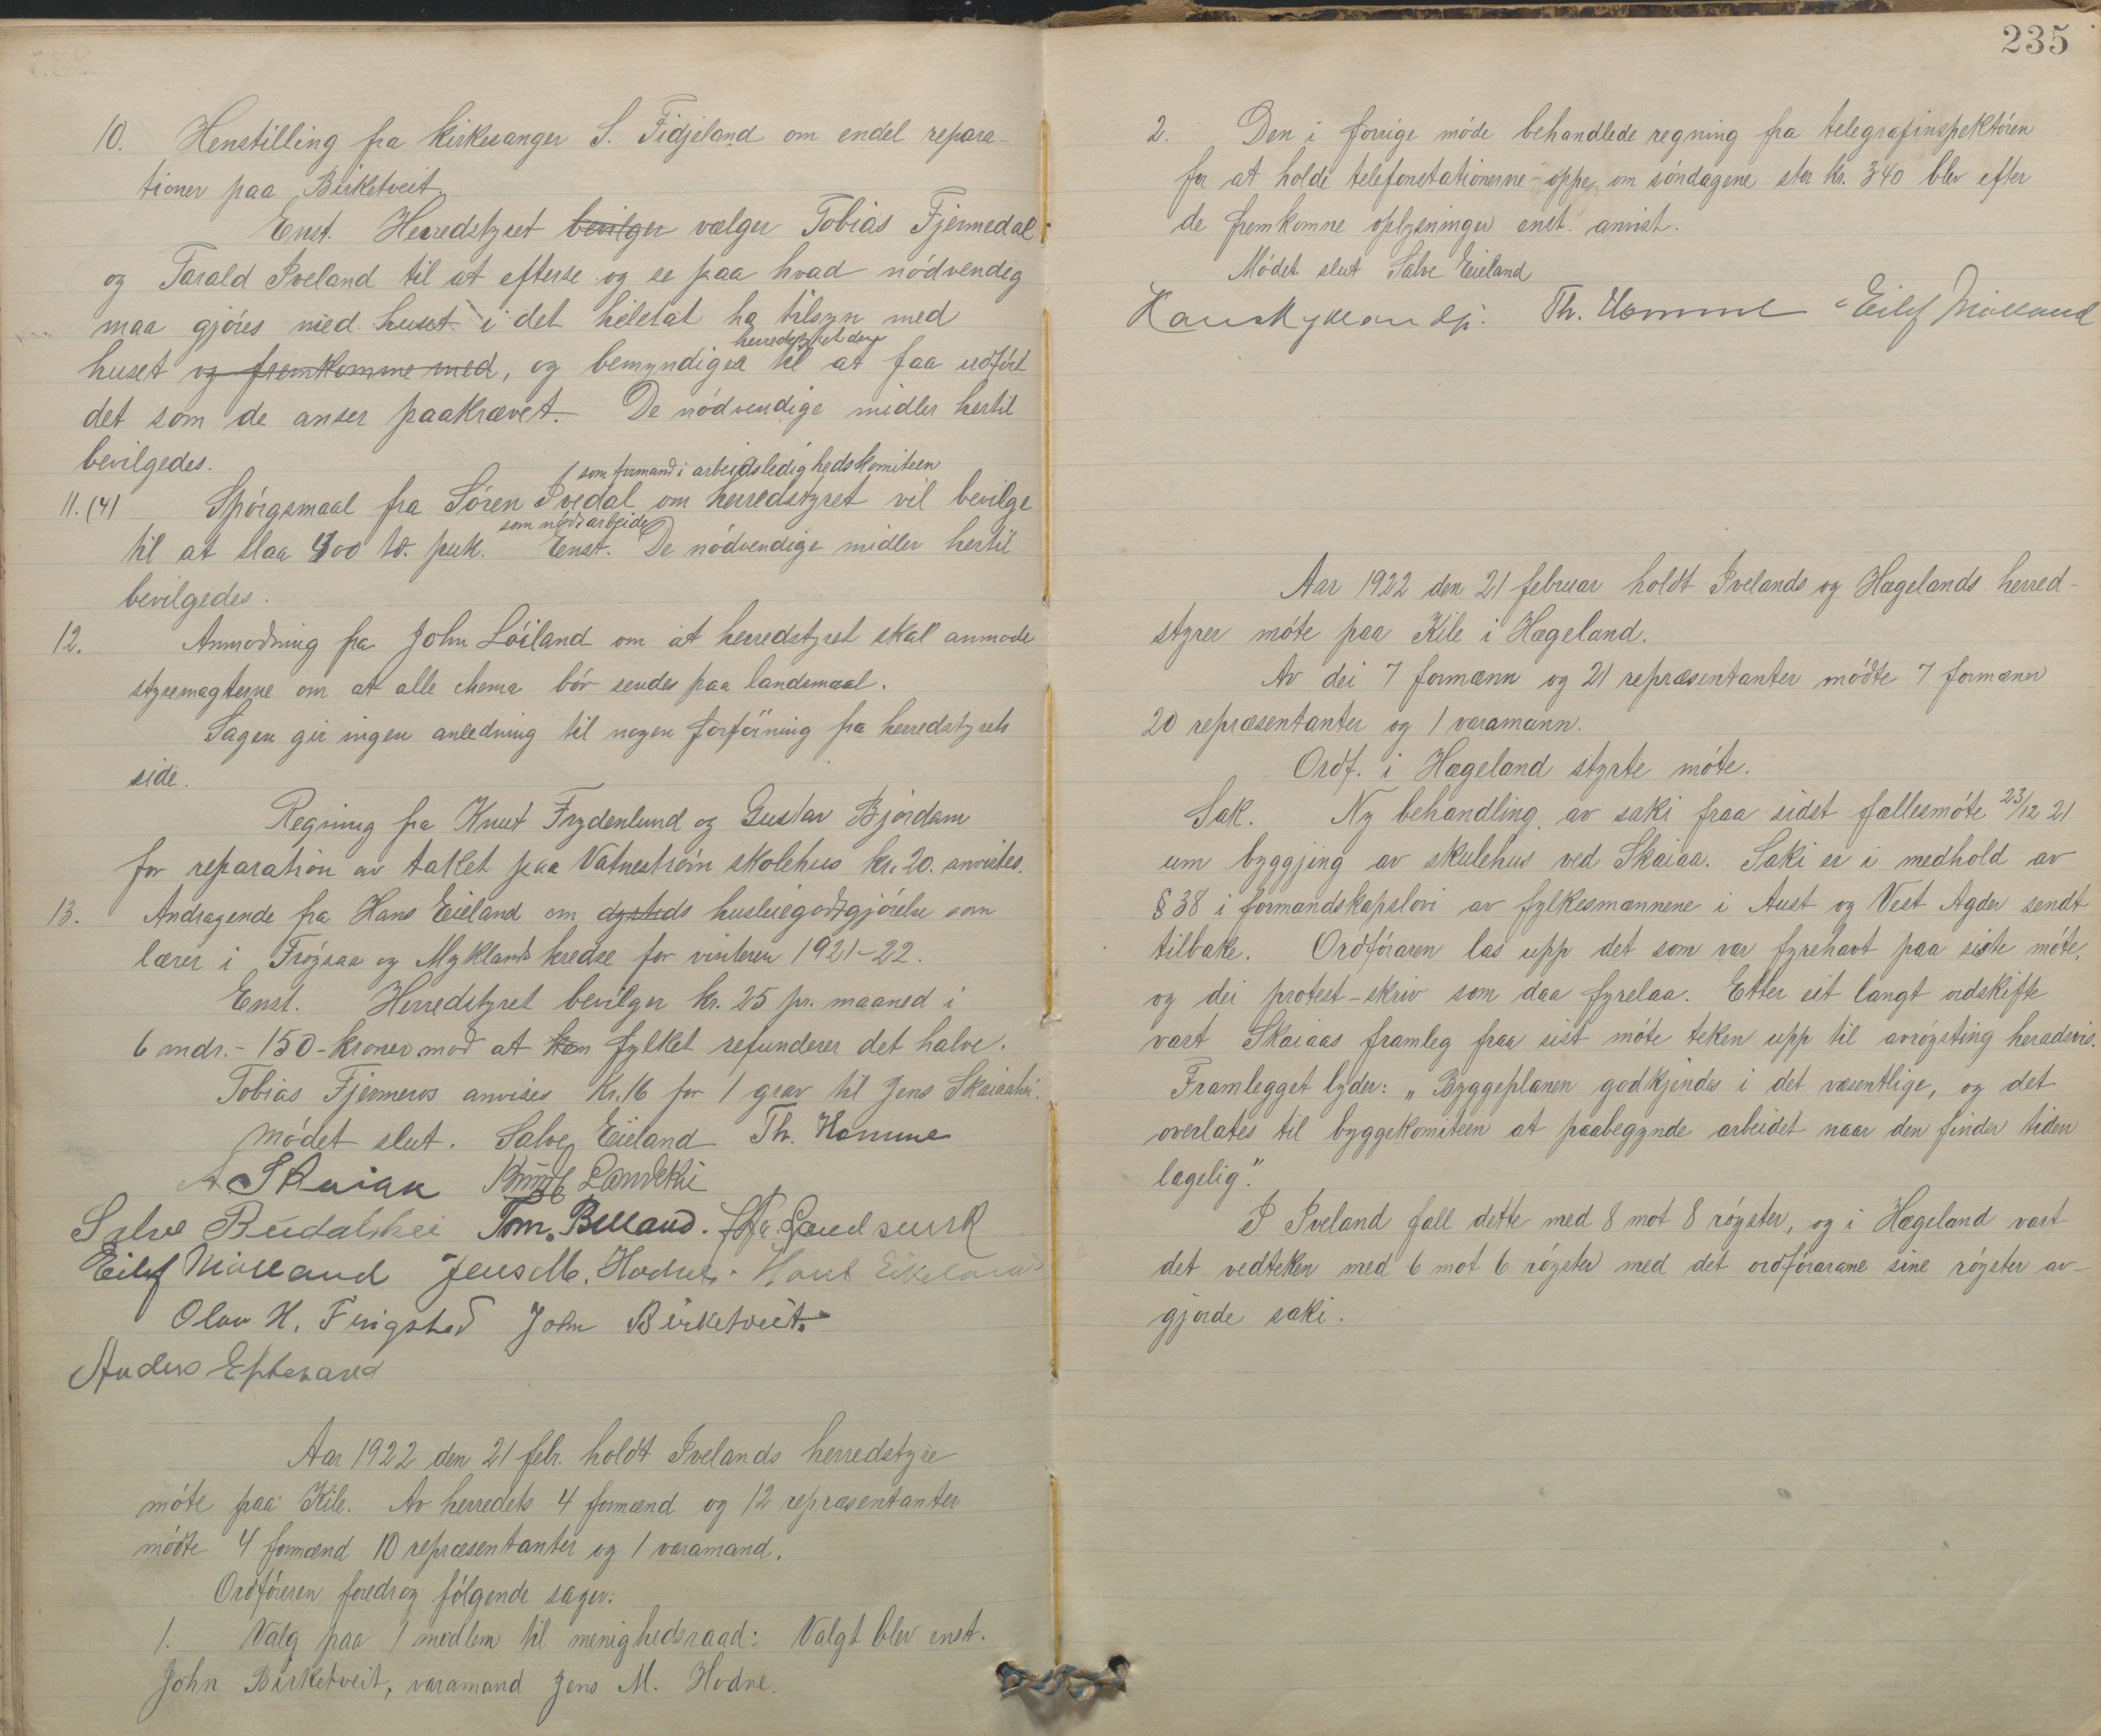 10. Henstilling fra kirkesanger S. Fidjeland om endel repara-
tioner paa Birketveit.
Enst. Herredstyret bevilger vælger Tobias Fjermedal
og Tarald Iveland til at efterse og se paa hvad nödvendig
maa gjöres med huset i det heletat ha tilsyn med
herredstyret dem
huset og fremkomme med, og bemyndiger til at faa udfört
det som de anser paakrævet. De nödvendige midler hertil
bevilgedes.
som formand i arbeidsledighedskomiteen
11. (4) Spörgsmaal fra Sören Ivedal om herredstyret vil bevilge
som nödsarbeide
til at slaa 400 td. puk. Enst. De nödvendige midler hertil
bevilgedes.
12. Anmodning fra John Löiland om at herredstyret skal anmode
styremagterne om at alle skema bör sendes paa landsmaal.
Sagen gir ingen anledning til nogen forföining fra herredstyrets
side.
Regning fra Knut Frydenlund og Gustav Björdam
for reparation av taket paa Vatneström skolehus kr. 20. anvistes.
13. Andragende fra Hans Eieland om husleiegodtgjörelse som
lærer i Fröysaa og Myklands kredse for vinteren 1921-22.
Enst. Herredstyret bevilger kr. 25 pr. maaned i
6 mdr. - 150 - kroner mod at fylket refunderer det halve.
Tobias Fjermeros anvises Kr. 16 for 1 grav til Jens Skaiaahei.
Mödet slut. Salve Eieland Th. Homme
A Skaiaa Knut Landskei
Salve Birdalskei Tom. Belland.
Eilef Mölland Jens M. Hodne. Hans Eikeland
Olav H. Frigstad John Birketveit.
Anders Epteland
Aar 1922 den 21 febr. holdt Ivelands herredstyre
möte paa Kile. Av herredets 4 formænd og 12 repræsentanter
mödte 4 formænd 10 repræsentanter og 1 varamand.
Ordföreren foredrog fölgende sager:
1. Valg paa 1 medlem til menighedsraad: Valgt blev enst.
John Birketveit, varamand Jens M. Hodne.
235
2. Den i forrige möde behandlede regning fra telegrafinspektören
for at holde telefonstationerne oppe om söndagene stor kr. 340 blev efter
de fremkomne oplysninger enst. anvist.
Mödet slut Salve Eieland
Th. Homme Eilef Mölland
Aar 1922 den 21 februar holdt Ivelands og Hægelands herred-
styrer möte paa Kile i Hægeland.
Av dei 7 formænn og 21 repræsentanter mödte 7 formænn
20 repræsentanter og 1 varamann.
Ordf. i Hægeland styrte möte.
Sak. Ny behandling av saki fraa sidst fællesmöte 23/12 21
um byggjing av skulehus ved Skaiaa. Saki er i medhold av
§ 38 i formandskapslovi av fylkesmannene i Aust og Vest Agder sendt
tilbake. Ordföraren las upp det som var fyrehavt paa siste möte,
og dei protest-skriv som daa fyrelaa. Etter eit langt ordskifte
vart Skaiaas framleg fraa sist möte teken upp til avröysting heradsvis.
Framlegget lyder: "Byggeplanen godkjendes i det væsentlige, og det
overlates til byggekomiteen at paabegynde arbeidet naar den finder tiden
lagelig".
I Iveland fall dette med 8 mot 8 röyster, og i Hægeland vart
det vedteken med 6 mot 6 röyster med det ordförarane sine röyster av-
gjorde saki.